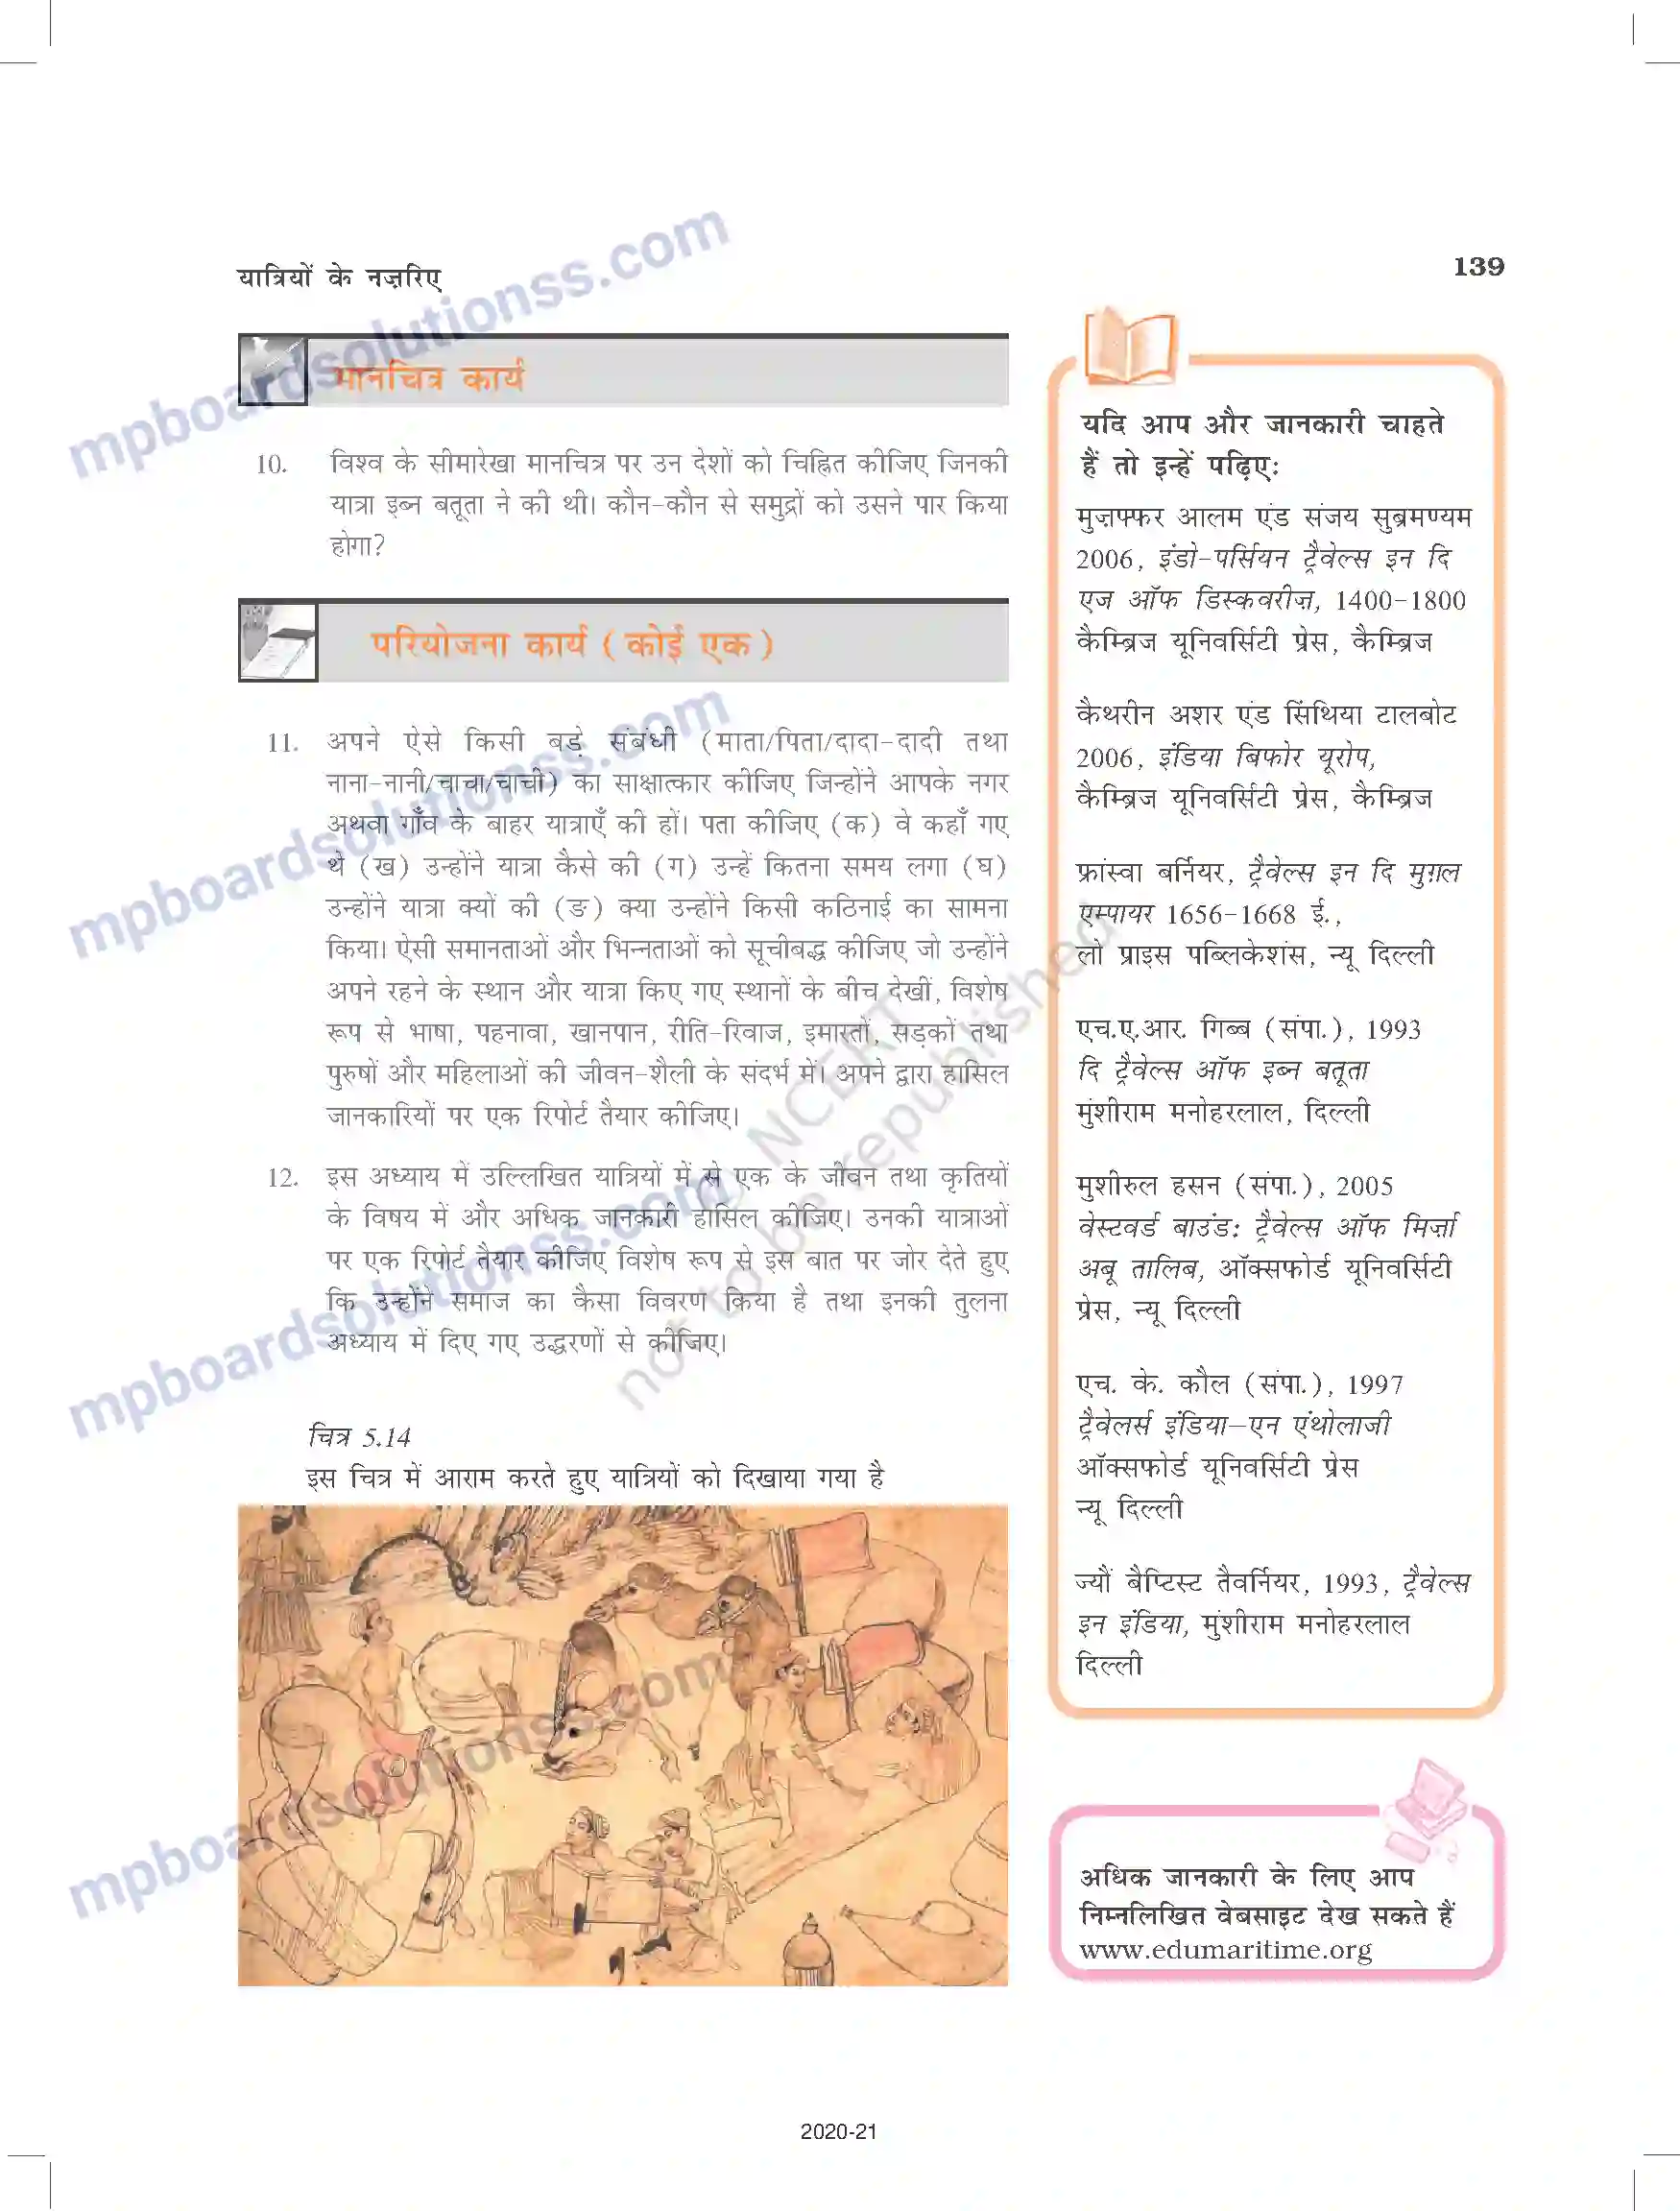 यात्रियों के नज़रिए
139
मानचित्र कार्य
10. विश्व के सीमारेखा मानचित्र पर उन देशों को चिह्नित कीजिए जिनकी
यात्रा इब्न बतूता ने की थी। कौन-कौन से समुद्रों को उसने पार किया
होगा?
परियोजना कार्य (कोई एक)
11. अपने ऐसे किसी बड़े संबंधी (माता/पिता/दादा-दादी तथा
नाना-नानी/चाचा/चाची) का साक्षात्कार कीजिए जिन्होंने आपके नगर
अथवा गाँव के बाहर यात्राएँ की हों। पता कीजिए (क) वे कहाँ गए
थे (ख) उन्होंने यात्रा कैसे की (ग) उन्हें कितना समय लगा (घ)
उन्होंने यात्रा क्यों की (ङ) क्या उन्होंने किसी कठिनाई का सामना
किया। ऐसी समानताओं और भिन्नताओं को सूचीबद्ध कीजिए जो उन्होंने
अपने रहने के स्थान और यात्रा किए गए स्थानों के बीच देखीं, विशेष
रूप से भाषा, पहनावा, खानपान, रीति-रिवाज, इमारतों, सड़कों तथा
पुरुषों और महिलाओं की जीवन-शैली के संदर्भ में। अपने द्वारा हासिल
जानकारियों पर एक रिपोर्ट तैयार कीजिए।
12. इस अध्याय में उल्लिखित यात्रियों में से एक के जीवन तथा कृतियों
के विषय में और अधिक जानकारी हासिल कीजिए। उनकी यात्राओं
पर एक रिपोर्ट तैयार कीजिए विशेष रूप से इस बात पर जोर देते हुए
कि उन्होंने समाज का कैसा विवरण किया है तथा इनकी तुलना
अध्याय में दिए गए उद्धरणों से कीजिए।
चित्र 5.14
इस चित्र में आराम करते हुए यात्रियों को दिखाया गया है
यदि आप और जानकारी चाहते
हैं तो इन्हें पढ़िए:
मुज़फ्फर आलम एंड संजय सुब्रमण्यम
2006, इंडो-पर्सियन ट्रैवेल्स इन दि
एज ऑफ डिस्कवरीज़, 1400-1800
कैम्ब्रिज यूनिवर्सिटी प्रेस, कैम्ब्रिज
कैथरीन अशर एंड सिंथिया टालबोट
2006, इंडिया बिफोर यूरोप,
कैम्ब्रिज यूनिवर्सिटी प्रेस, कैम्ब्रिज
फ्रांस्वा बर्नियर, ट्रैवेल्स इन दि मुग़ल
एम्पायर 1656-1668 ई.,
लो प्राइस पब्लिकेशंस, न्यू दिल्ली
एच.ए.आर. गिब्ब (संपा.), 1993
दि ट्रैवेल्स ऑफ इब्न बतूता
मुंशीराम मनोहरलाल, दिल्ली
मुशीरुल हसन (संपा.), 2005
वेस्टवर्ड बाउंड: ट्रैवेल्स ऑफ मिर्ज़ा
अबू तालिब, ऑक्सफोर्ड यूनिवर्सिटी
प्रेस, न्यू दिल्ली
एच. के. कौल (संपा.), 1997
ट्रैवेलर्स इंडिया—एन एंथोलाजी
ऑक्सफोर्ड यूनिवर्सिटी प्रेस
न्यू दिल्ली
ज्यौं बैप्टिस्ट तैवर्नियर, 1993, ट्रैवेल्स
इन इंडिया, मुंशीराम मनोहरलाल
दिल्ली
अधिक जानकारी के लिए आप
निम्नलिखित वेबसाइट देख सकते हैं
www.edumaritime.org
2020-21
mpboardsolutionss.com
mpboardsolutionss.com
mpboardsolutionss.com
mpboardsolutionss.com
© NCERT
not to be republished